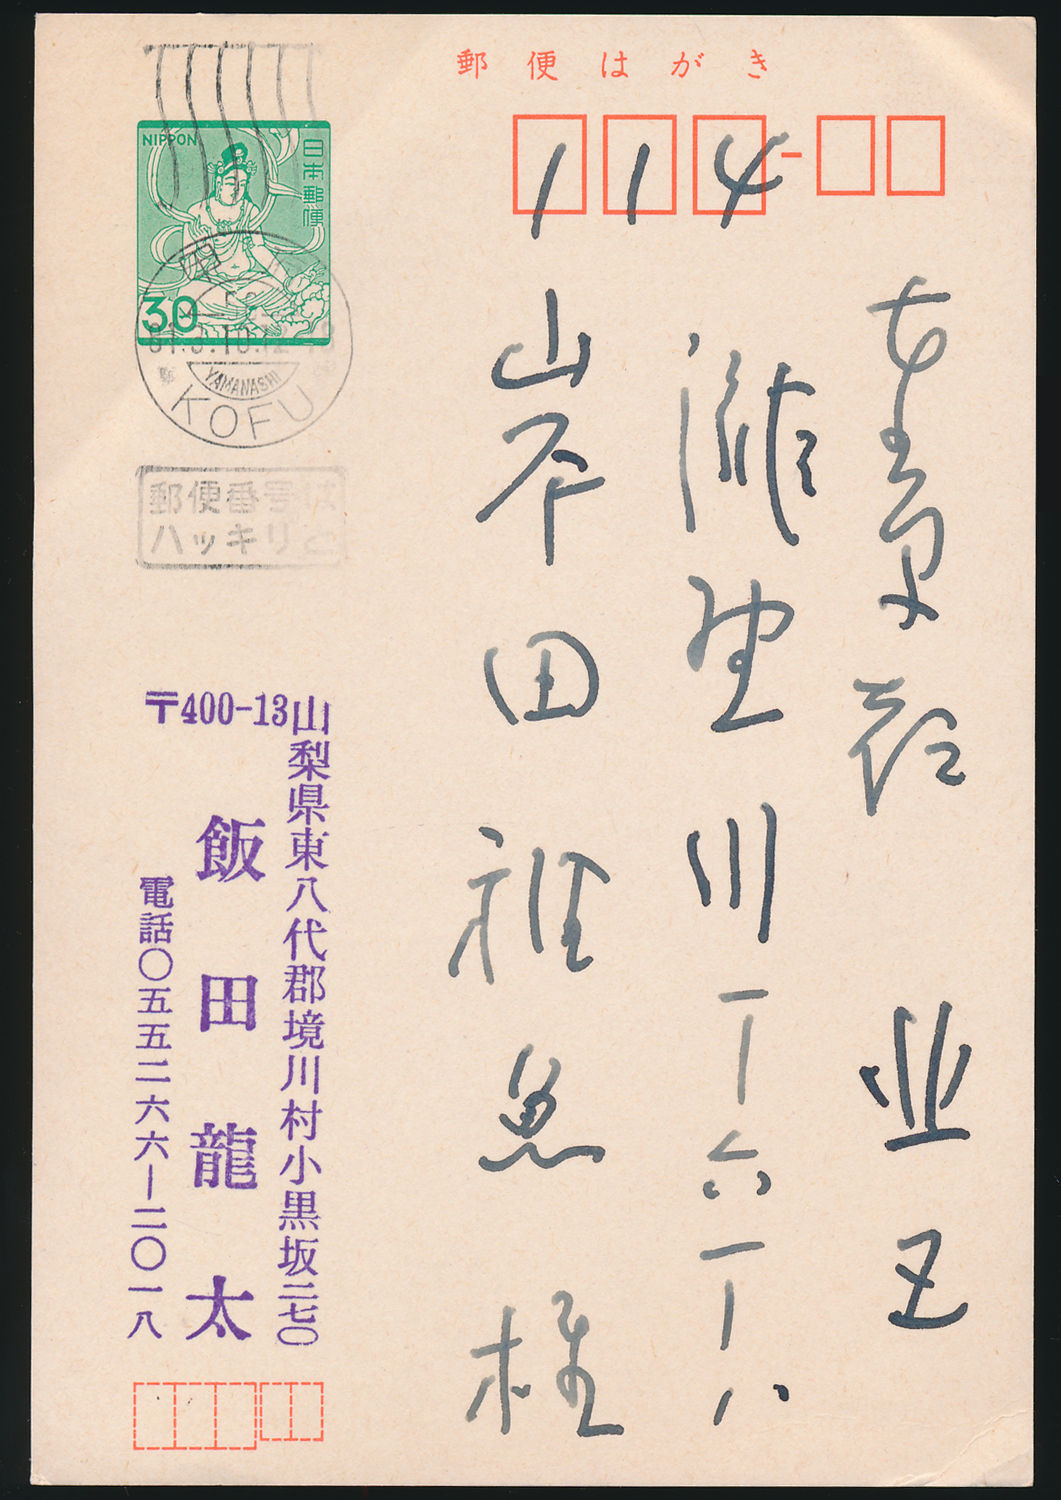 郵便はがき
NIPPON
日本郵便
30
YAMANASHI
KOFU
郵便番号は
ハッキリと
114
東京都北区
滝野川一ノ六一ノ八
岸田稚魚様
〒400-13
山梨県東八代郡境川村小黒坂二七〇
飯田龍太
電話〇五五二六六―二〇一八